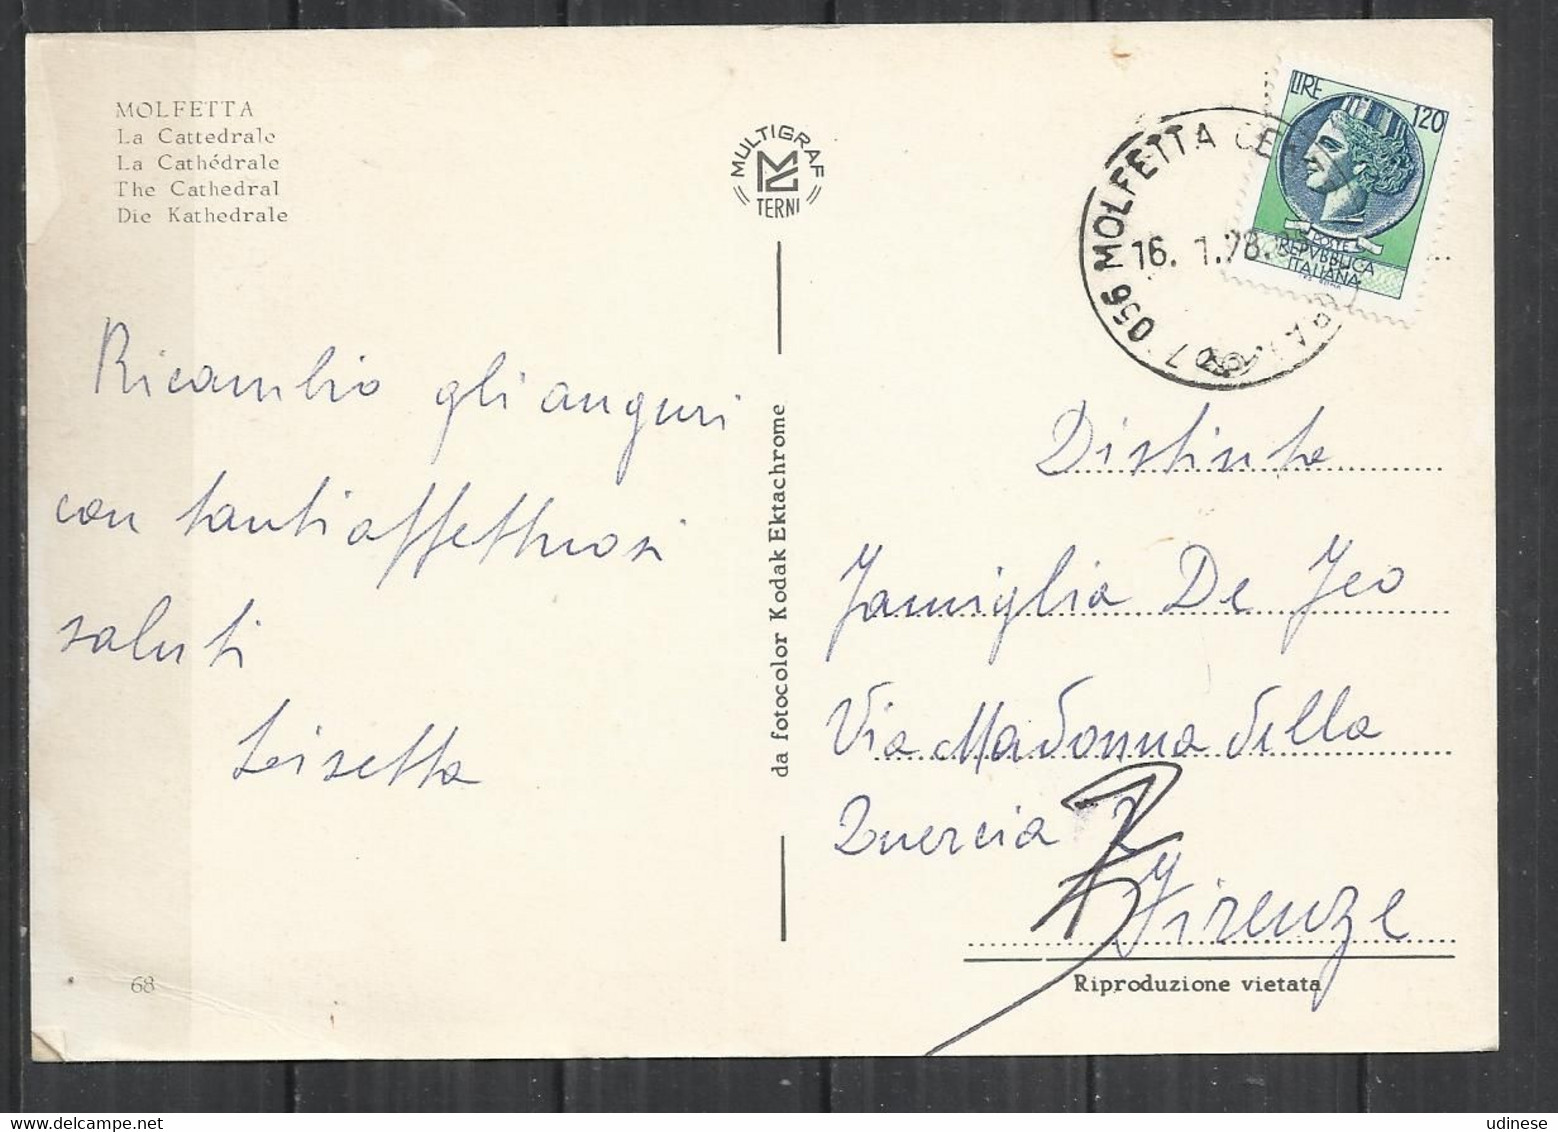 MOLFETTA
La Cattedrale
La Cathédrale
The Cathedral
Die Kathedrale
MULTIGRAF
TERNI
LIRE 120
POSTE
REPVBBLICA
ITALIANA
056 MOLFETTA
16. 1.78.
Ricambio gli auguri
con tanti affettuosi
saluti
Lisetta
da fotocolor Kodak Ektachrome
Distinta
Famiglia De Feo
Via Madonna della
Quercia
Firenze
68
Riproduzione vietata
udinese